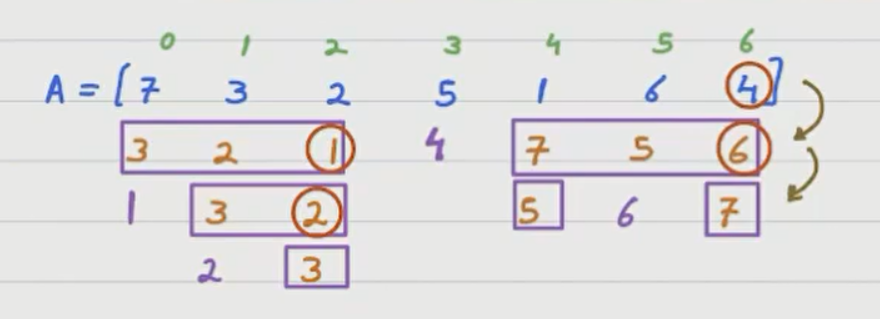 0 1 2 3 4 5 6
A = [7 3 2 5 1 6 4]
3 2 1 4 7 5 6
1 3 2 5 6 7
2 3